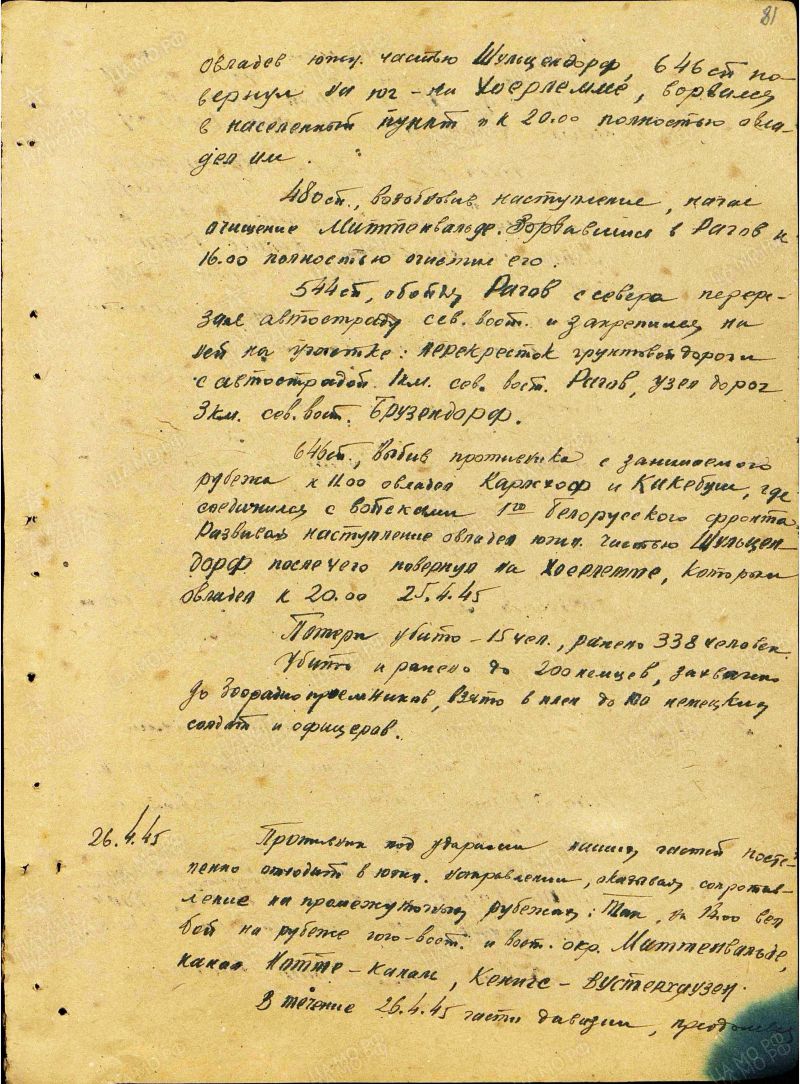 81
овладев южн. частью Шульцендорф, 646 сп по-
вернул на юг - на Хоерлемме, ворвался
в населенный пункт и к 20.00 полностью овла-
дел им.
480 сп, возобновив наступление, начал
очищение Миттенвальде. Ворвавшись в Рагов к
16.00 полностью очистил его.
544 сп, обойдя Рагов с севера перере-
зал автостраду сев. вост. и закрепился на
ней на участке: перекресток грунтовой дороги
с автострадой 1 км. сев. вост. Рагов, узел дорог
3 км. сев. вост. Брузендорф.
646 сп, выбив противника с занимаемого
рубежа к 11.00 овладел Карлхоф и Кикебуш, где
соединился с войсками 1го Белорусского фронта
Развивая наступление овладел южн. частью Шульцен-
дорф после чего повернул на Хоерлемме, которым
овладел к 20.00 25.4.45
Потери убито - 15 чел., ранено 338 человек.
Убито и ранено до 200 немцев, захвачено
до 300 радиоприемников, взято в плен до 100 немецких
солдат и офицеров.
26.4.45 Противник под ударами наших частей посте-
пенно отходит в южн. направлении, оказывая сопротив-
ление на промежуточных рубежах: Так, к 13.00 вел
бой на рубеже юго-вост. и вост. окр. Миттенвальде,
канал Нотте-канал, Кенигс-Вустерхаузен.
В течение 26.4.45 части дивизии, преодолевая